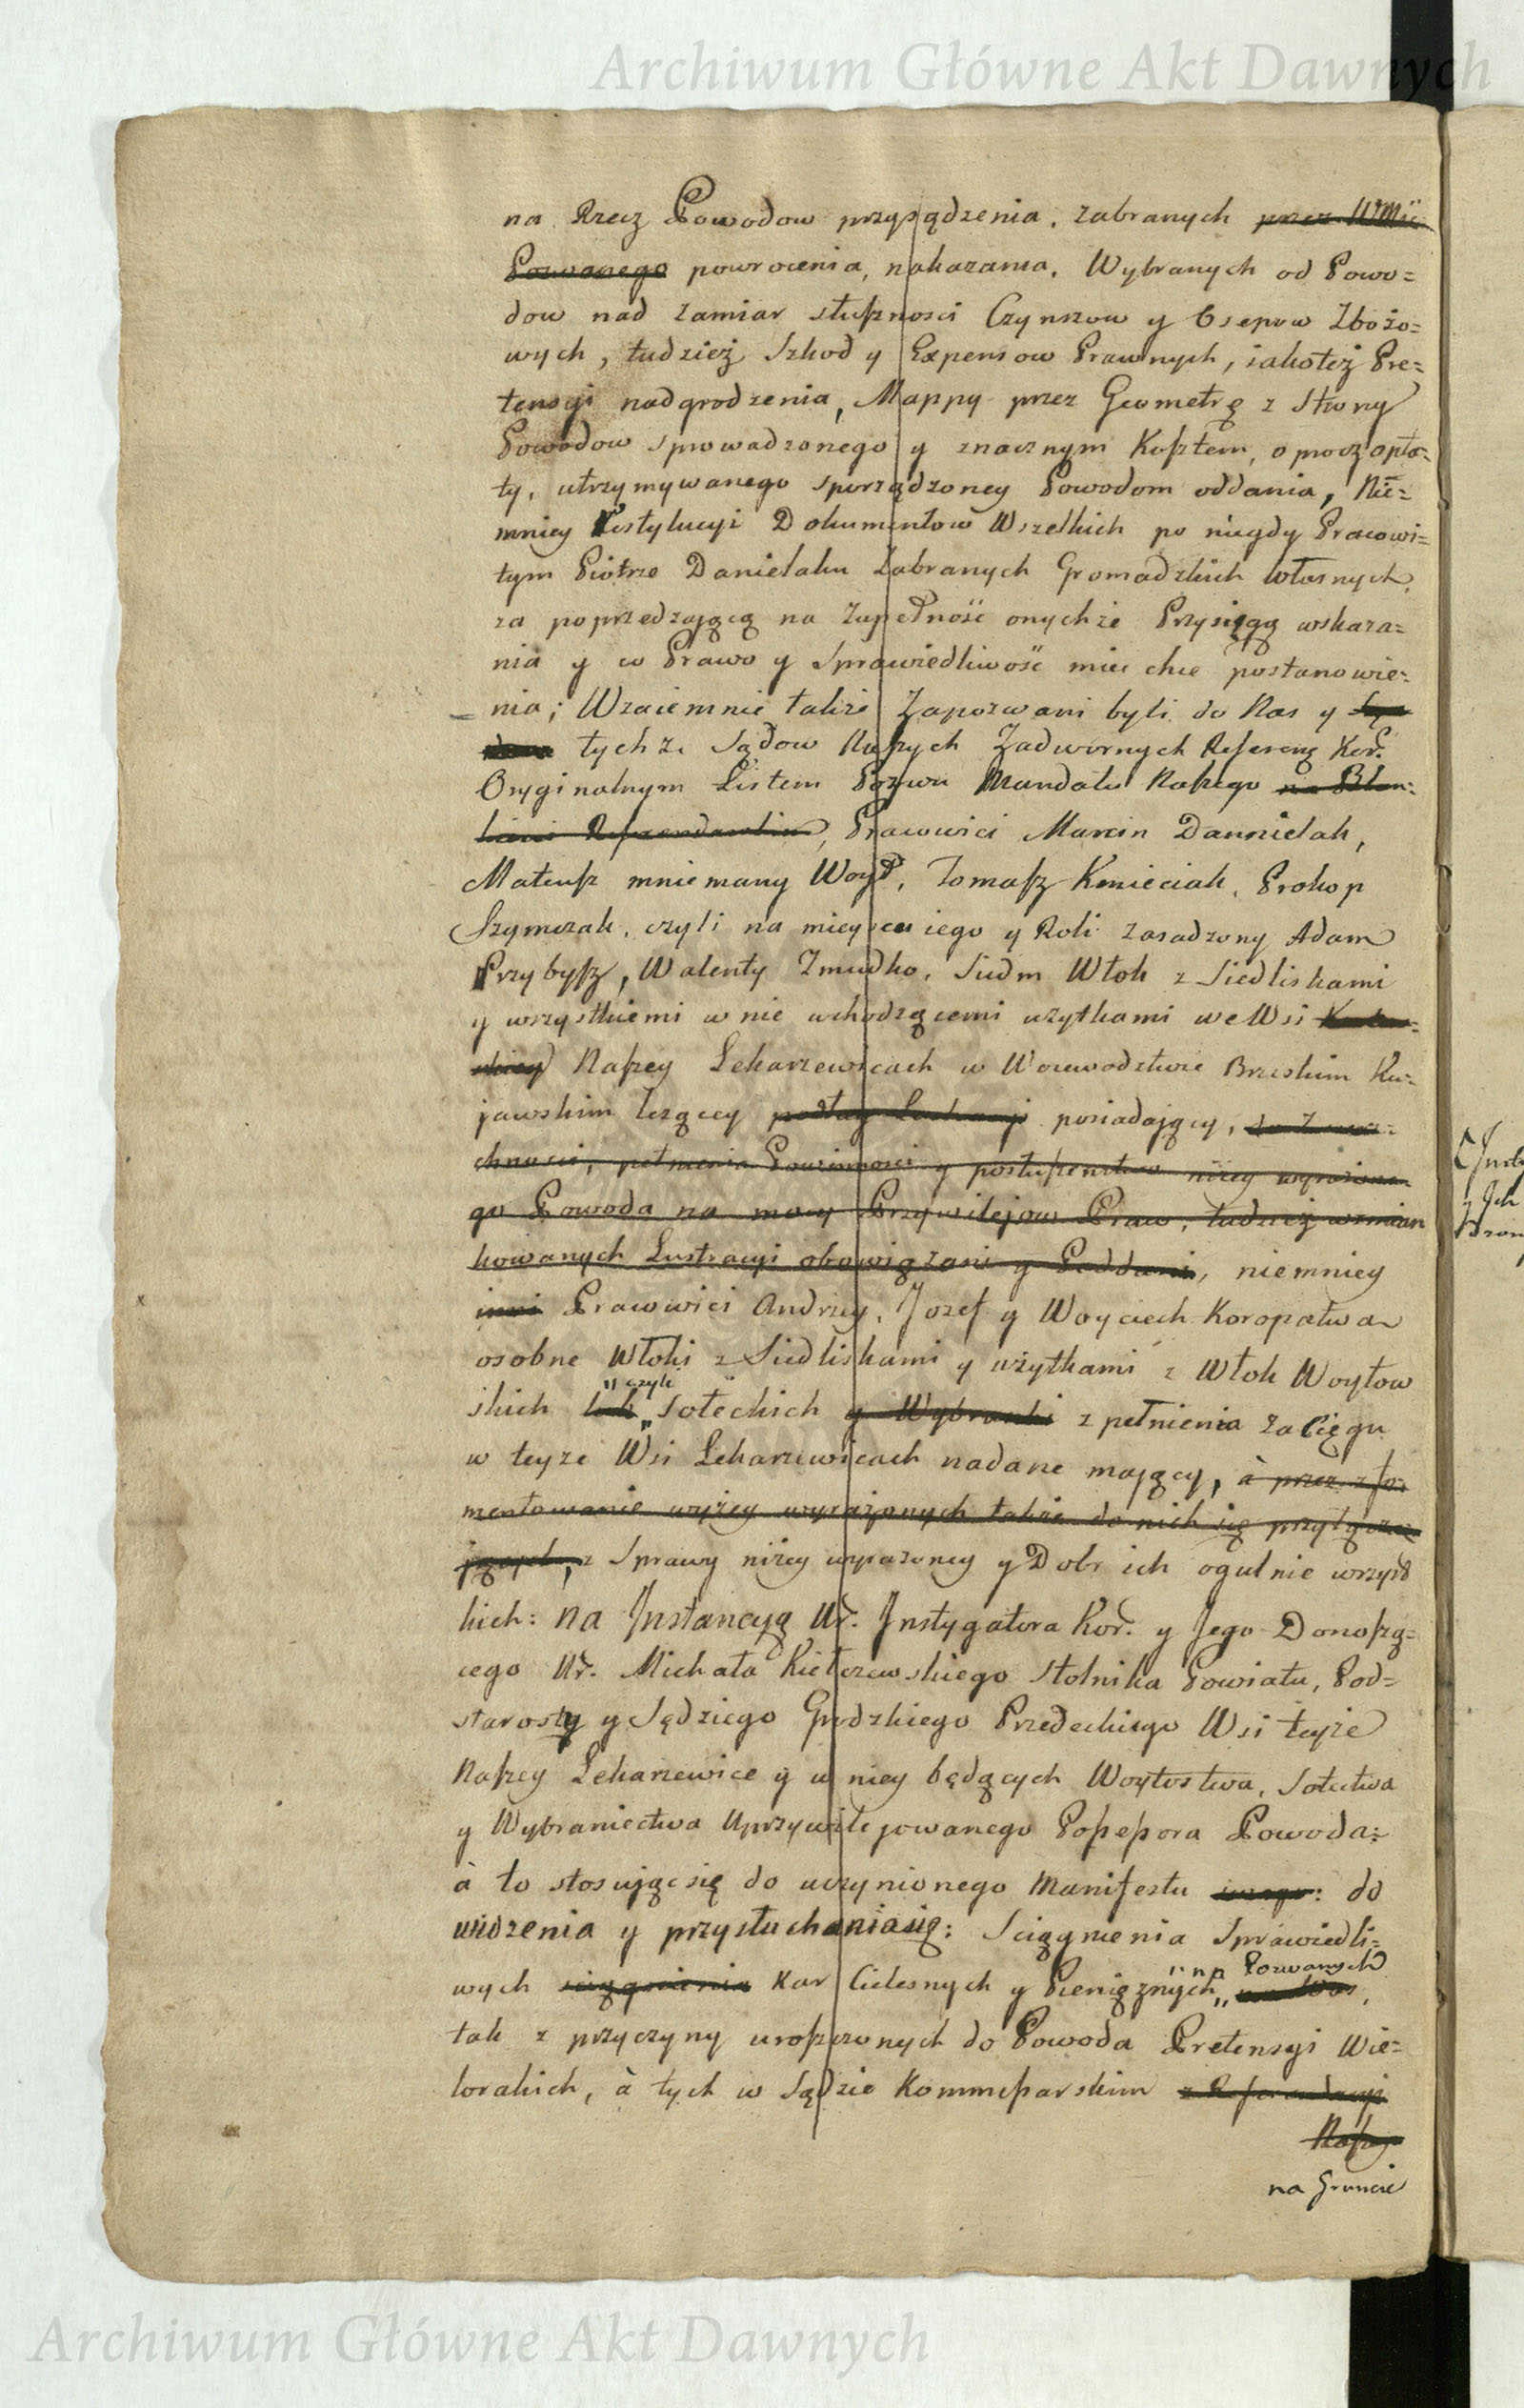 Archiwum Główne Akt Dawnych
na Rzecz Powodow przysądzenia, zabranych przez WMć
Pozwanego powrocenia, nakazania, Wybranych od Powo=
dow nad zamiar słuszności Czynszow y Osepow Zbożo=
wych, tudzież Szkod y Expensow Prawnych, iakoteż Pre=
tensyi nadgrodzenia, Mappy przez Geometrę z Strony
Powodow sprowadzonego y znacznym Kosztem, oprocz opła=
ty, utrzymywanego sporządzoney Powodom oddania, Nie=
mniey Restytucyi Dokumentow Wszelkich po niegdy Pracowi=
tym Piotrze Danielaku Zabranych Gromadzkich własnych,
za poprzedzającą na Zupełność onychże Przysięgą wskaza=
nia y w Prawo y Sprawiedliwość mieć chce postanowie=
nia; Wzaiemnie także Zapozwani byli do Nas y
tychże Sądow Naszych Zadwornych Referenę Kor.
Oryginalnym Listem Pozwu Mandatu Naszego na Blan=
Pracowici Marcin Dannielak,
Mateusz mniemany Woyt, Tomasz Kmieciak, Prokop
Szymczak, czyli na mieyscu iego y Roli zasadzony Adam
Przybysz, Walenty Zmudko, Siedm Włok z Siedliskami
y wszystkiemi w nie wchodzącemi użytkami we Wsi
Naszey Lekarzewicach w Woiewodztwie Brzeskim Ku=
jawskim leżącey posiadający,
chności, pełnienia Powinności y posłuszeństwa niżey wyrażone
go Powoda na mocy Przywilejow Praw, tudzież wzmian
kowanych Lustracyi obowiązani y Poddani, niemniey
inni Pracowici Andrzey, Jozef y Woyciech Koropatwa
osobne Włoki z Siedliskami y użytkami z Włok Woytow
czyli
skich lub Sołeckich y Wybranki z pełnienia Zaciągu
w teyże Wsi Lekarzewicach nadane mający, à przez zfo=
mentowanie wyżey wyrażonych także do nich się przyłącza
jących, z Sprawy niżey wyrażoney y Dobr ich ogulnie wszyst
kich: na Instancyą Ur. Instygatora Kor. y Jego Donoszą=
cego Ur. Michała Kiełczewskiego Stolnika Powiatu, Pod=
starosty y Sędziego Grodzkiego Przedeckiego Wsi teyże
Naszey Lekarzewice y w niey będących Woytostwa, Sołectwa
y Wybraniectwa Uprzywilejowanego Possessora Powoda:
à to stosując się do uczynionego Manifestu do
widzenia y przysłuchania się: Sciągnienia Sprawiedli=
na Pozwanych
wych sciągnienia Kar Cielesnych y Pieniężnych,
tak z przyczyny uroszczonych do Powoda Pretensyi Wie=
lorakich, à tych w Sądzie Kommissarskim z Referendaryi
Naszey
na Gruncie
Archiwum Główne Akt Dawnych